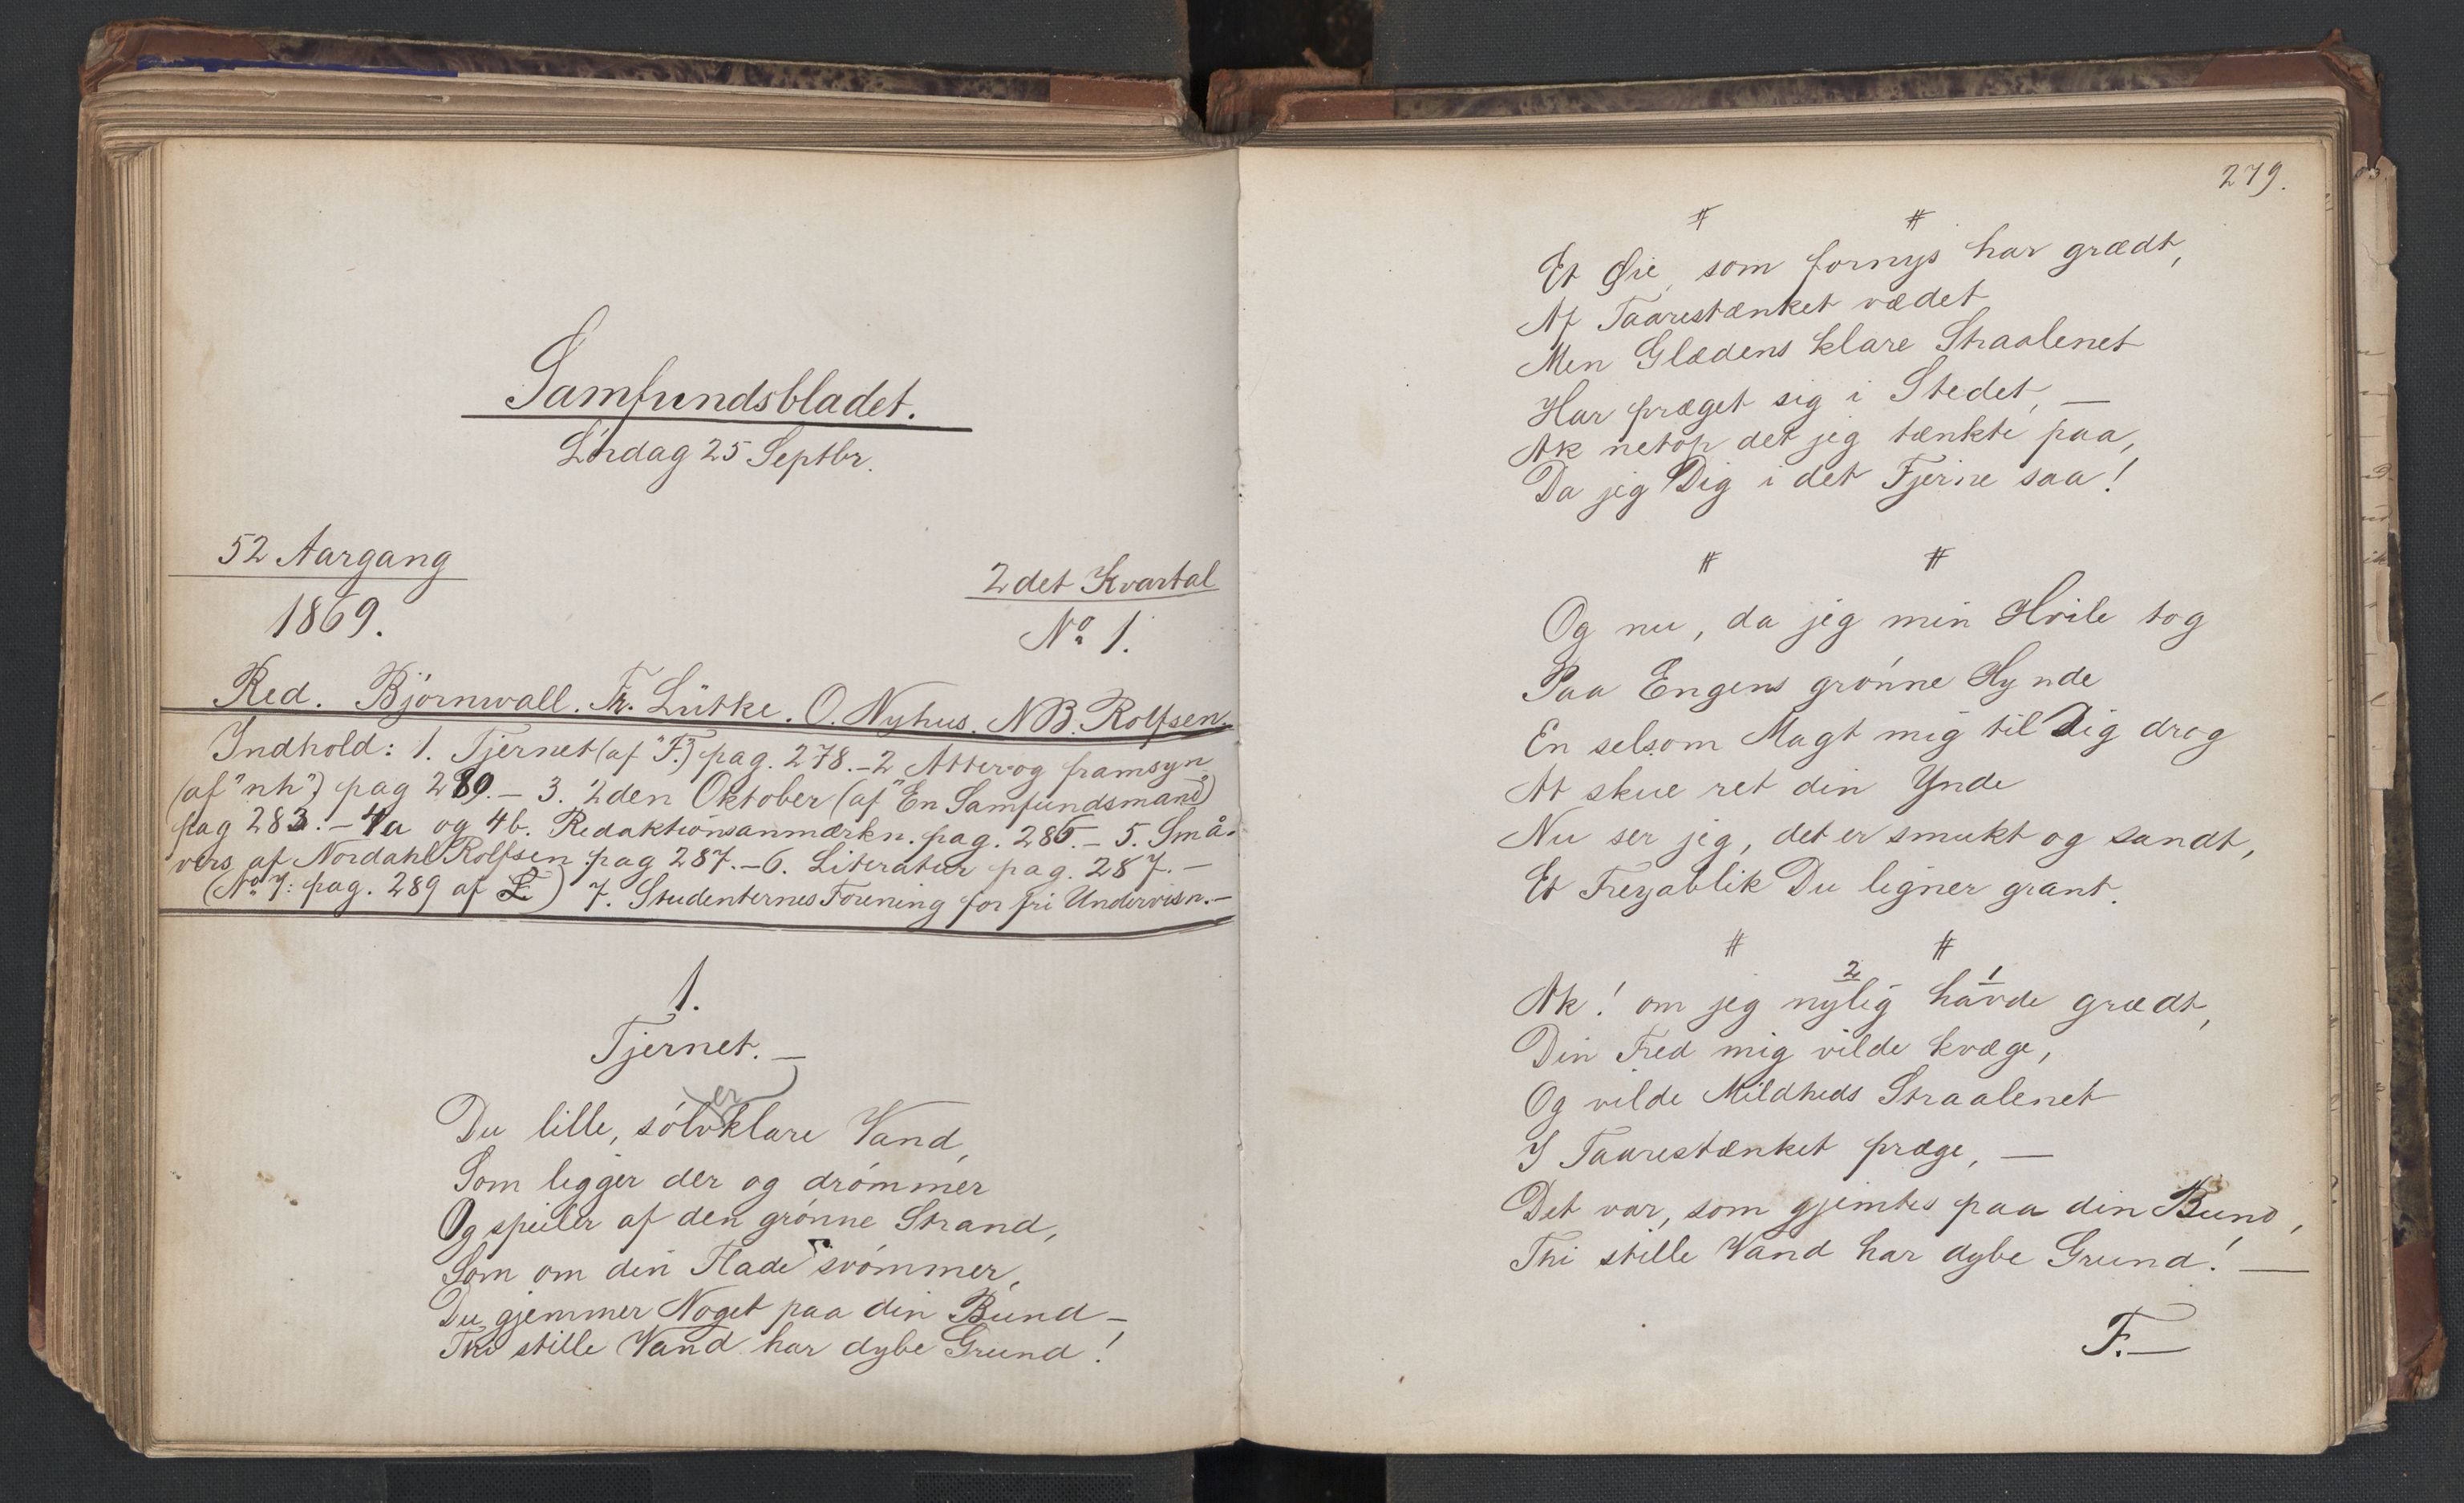 Samfundsbladet.
Lördag 25 Septbr.
52 Aargang
1869.
2det Kvartal
No 1.
Red. Björnwall. Fr. Lütke. O. Nyhus. N B. Rolfsen.
Indhold: 1. Tjernet (af "F.") pag. 278. - 2 Atter og framsyn
(af "nh") pag 280. - 3. 2den Oktober (af "En Samfundsmand)
pag 283. - 4a og 4b. Redaktionsanmærkn. pag. 286. - 5. Små-
vers af Nordahl Rolfsen pag 287. - 6. Literatur pag. 287. -
(No 7: pag. 289 af L) 7. Studenternes Forening for fri Undervisn. -
1.
Tjernet. —
er
Du lille, sölvklare Vand,
Som ligger der og drömmer
Og speiler af den grönne Strand,
Som om din Flade svömmer,
Du gjemmer Noget paa din Bund -
Thi stille Vand har dybe Grund!
279.
# #
Et Øie, som fornys har grædt,
Af Taarestænket vædet
Men Glædens klare Straalenet
Har præget sig i Stedet, —
Ak netop det jeg tænkte paa,
Da jeg Dig i det Fjerne saa!
# #
Og nu, da jeg min Hvile tog
Paa Engens grönne Hynde
En selsom Magt mig til Dig drog
At skue ret din Ynde
Nu ser jeg, det er smukt og sandt,
Et Freyablik Du ligner grant.
# #
2 1
Ak! om jeg nylig havde grædt,
Din Fred mig vilde kvæge,
Og vilde Mildheds Straalenet
I Taarestænket præge, —
Det var, som gjemtes paa din Bund,
Thi stille Vand har dybe Grund! —
F. —